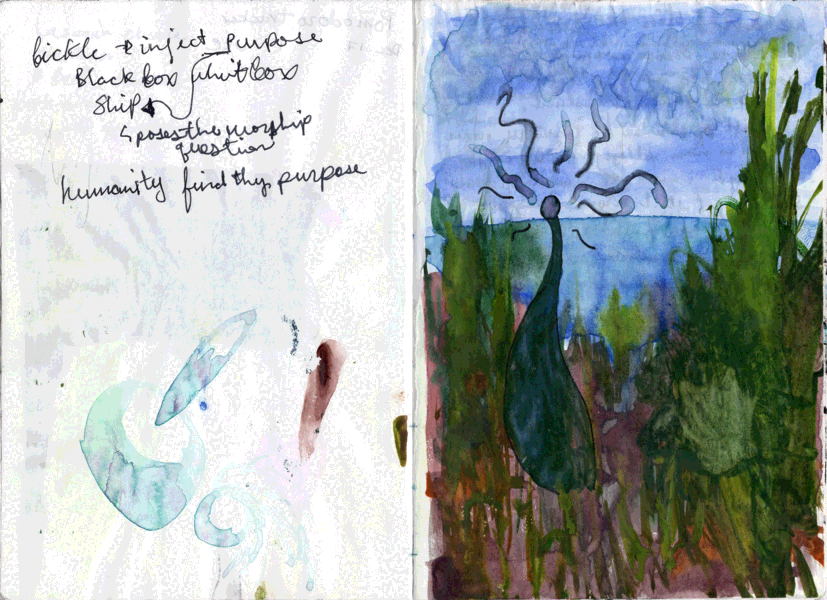 fickle & inject purpose
Black box whitbox
Ship
poses the worship
question
humanity find thy purpose
Pomodoro